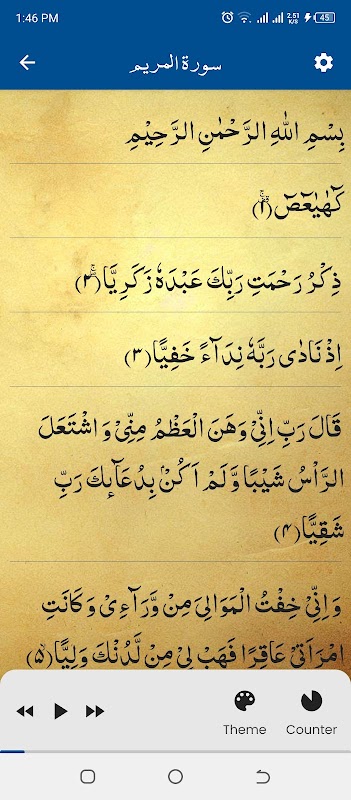 1:46 PM
2.51 K/S
45
سورة المريم
بِسْمِ اللّٰهِ الرَّحْمٰنِ الرَّحِيْمِ
كٓهٰيٰعٓصٓ ۚ(۱)
ذِكْرُ رَحْمَتِ رَبِّكَ عَبْدَهٗ زَكَرِيَّا ۖۚ(۲)
اِذْ نَادٰى رَبَّهٗ نِدَآءً خَفِيًّا(۳)
قَالَ رَبِّ اِنِّیْ وَهَنَ الْعَظْمُ مِنِّیْ وَ اشْتَعَلَ
الرَّاْسُ شَیْبًا وَّ لَمْ اَكُنْۢ بِدُعَآىٕكَ رَبِّ
شَقِیًّا(۴)
وَ اِنِّیْ خِفْتُ الْمَوَالِیَ مِنْ وَّرَآءِیْ وَ كَانَتِ
امْرَاَتِیْ عَاقِرًا فَهَبْ لِیْ مِنْ لَّدُنْكَ وَلِیًّاۙ(۵)
Theme
Counter